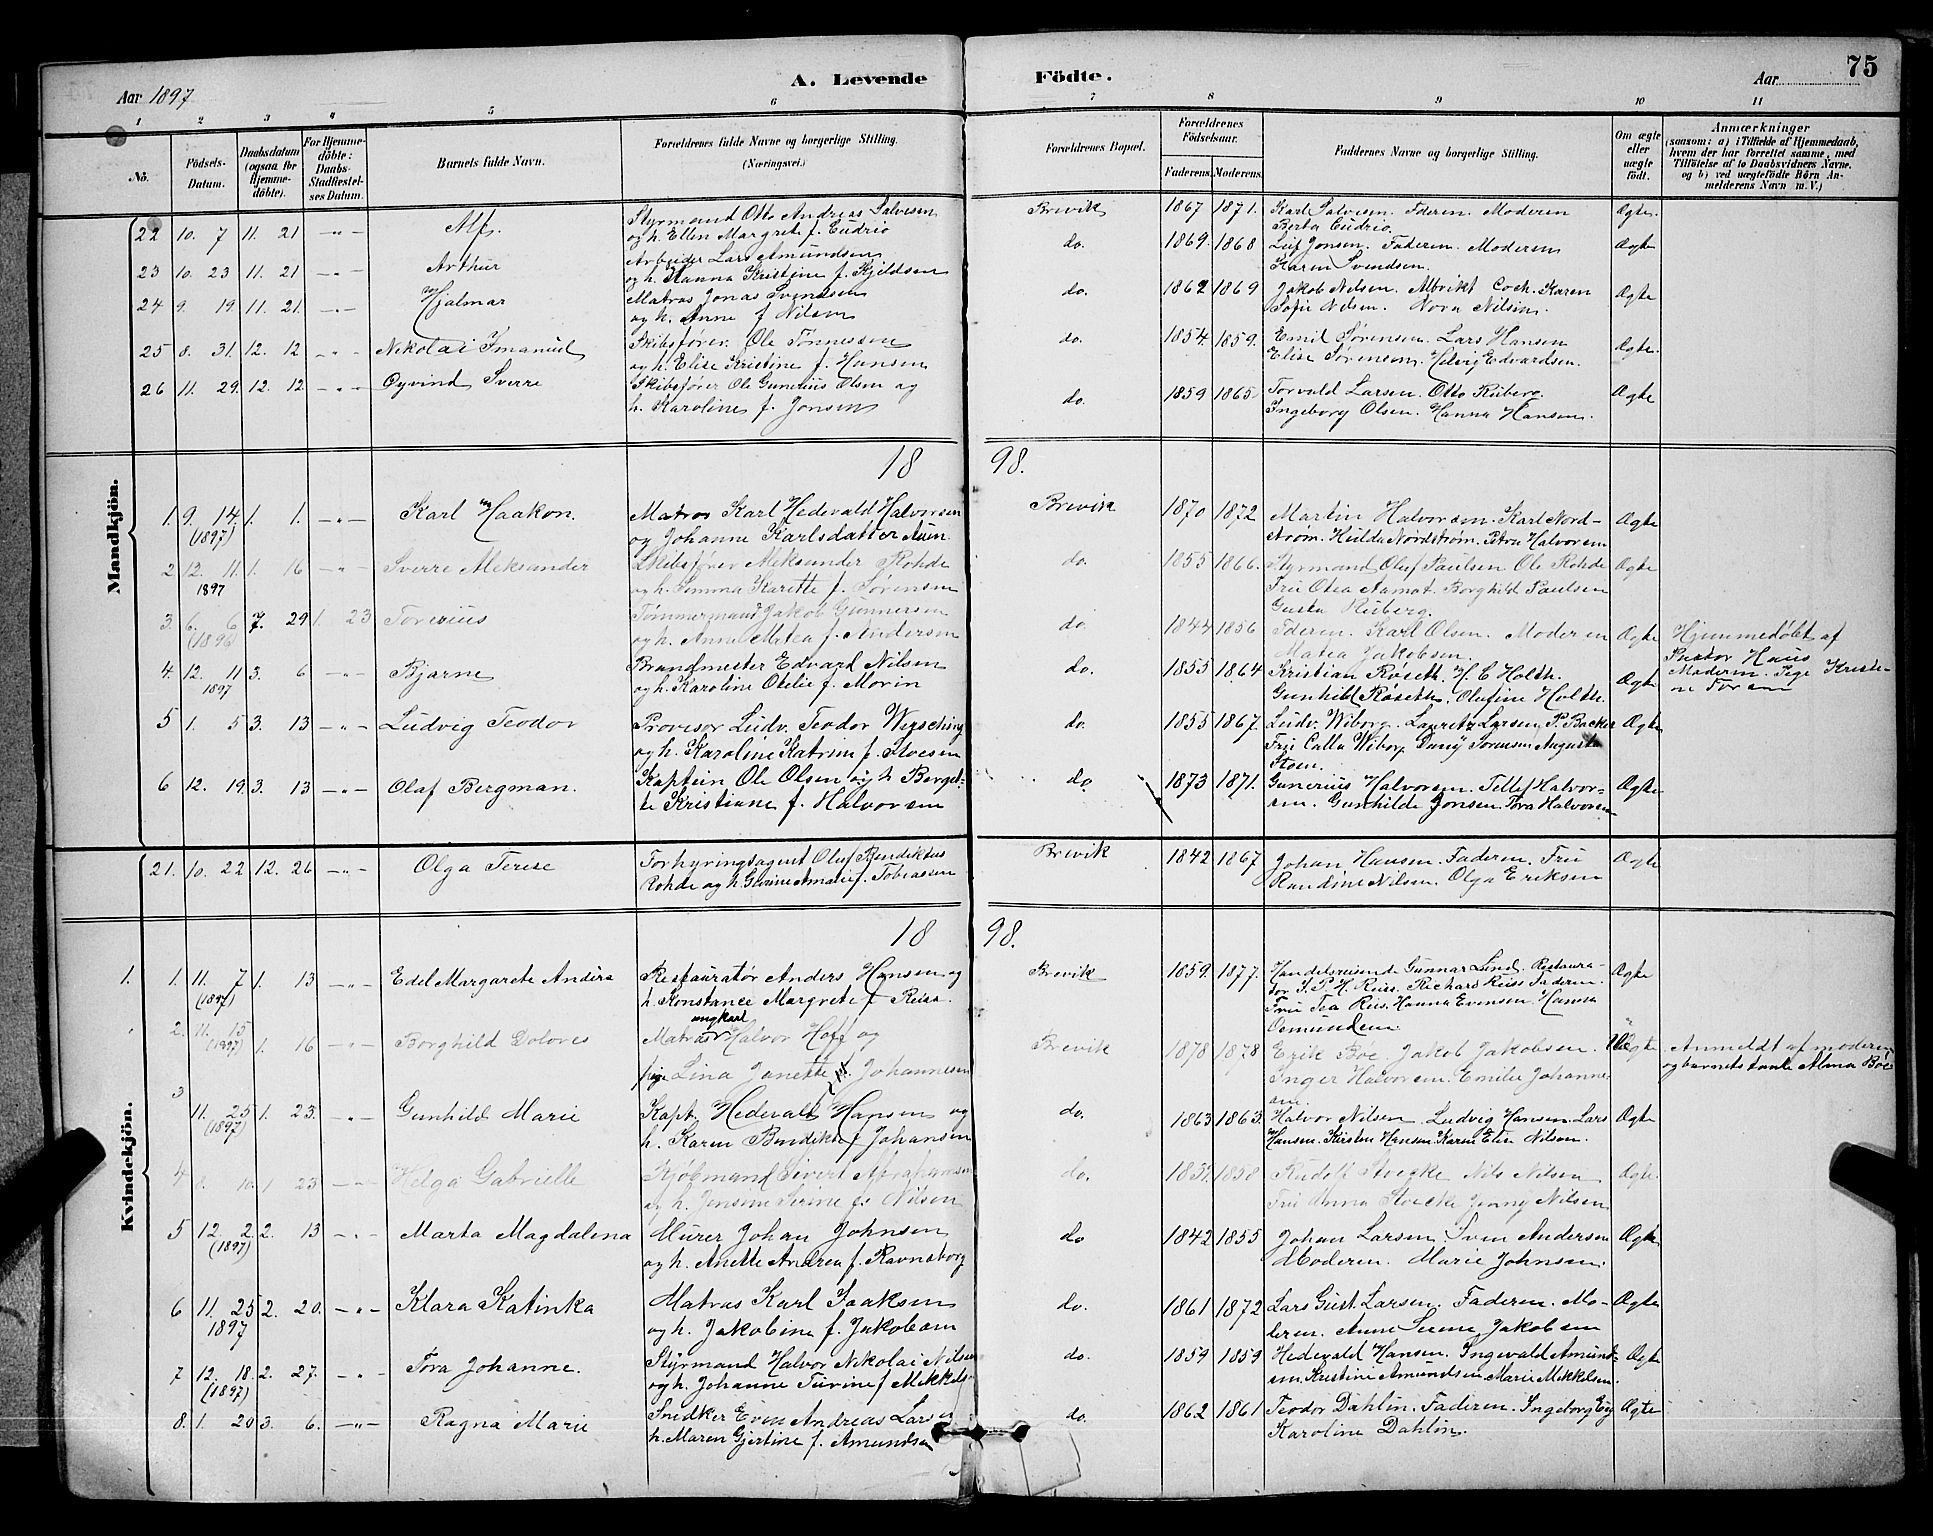 75
A. Levende Födte.
Aar 1897
Aar
1 2 3 4 5 6 7 8 9 10 11
No.
Födsels-Datum.
Daabsdatum (ogsaa for Hjemme-döbte).
For Hjemme-döbte: Daabs-Stadfæstel-ses Datum.
Barnets fulde Navn.
Forældrenes fulde Navne og borgerlige Stilling. (Næringsvei.)
Forældrenes Bopæl.
Forældrenes Födselsaar.
Faderens. Moderens.
Faddernes Navne og borgerlige Stilling.
Om ægte eller uægte födt.
Anmærkninger
(saasom: a) i Tilfælde af Hjemmedaab, hvem der har forrettet samme, med Tilföielse af to Daabsvidners Navne, og b) ved uægtefödte Börn Anmelderens Navn m. V.)
Mandkjön.
22 10. 7 11. 21 -"- Alf. Styrmand Otto Andreas Salvesen Brevik 1867 1871. Karl Salvesen. Faderen. Moderen Ægte.
og h. Ellen Margrete f. Cudrio Berta Cudrio.
23 10. 23 11. 21 -"- Arthur Arbeider Lars Amundsen do. 1869 1868 Leif Jonsen. Faderen. Moderen Ægte
og h. Hanna Kristine f. Kjeldsen Karen Svendsen.
24 9. 19. 11. 21. -"- Hjalmar Matros Jonas Svendsen do. 1862 1869 Jakob Nilsen. Albrikt Coch. Karen Ægte
og h. Anne f Nilsen Sofie Nilsen. Nora Nilsen.
25 8. 31. 12. 12 -"- Nikolai Imanuel Skibsfører. Ole Tønnessen do. 1854 1859. Emil Sørensen. Lars Hansen Ægte.
og h. Elise Kristine f. Hansen Elise Sørensen. Helvig Edvardsen.
26 11. 29. 12. 12 -"- Oyvind Sverre Skibsfører Ole Gunerius Olsen og do. 1859 1865 Torvald Larsen. Otto Ruberg. Ægte
h. Karoline f. Jonsen Ingeborg Olsen. Hanna Hansen.
18 98.
1. 9. 14. 1. 1. -"- Karl Haakon. Matros Karl Hedevald Halvorsen Brevik 1870 1872 Martin Halvorsen. Karl Nord- Ægte
(1897) og Johanne Karlsdatter Aum. strøm. Hulda Nordstrøm. Petra Halvorsen
2 12. 11. 1. 16 -"- Sverre Aleksander Skibsfører Aleksander Rohde do. 1855 1866. Styrmand Oluf Paulsen Ole Rohde Ægte
1897 og h. Emma Karitte f. Sørensen Fru Otea Aamot. Borghild Paulsen
Gusta Ruberg.
3. 6. 6 7. 29 1. 23 Torerius Tømmermand Jakob Gunnersen do. 1844 1856 Faderen. Karl Olsen. Moderen Ægte Hjemmedøbt af
og h. Anne Matea f. Andersen Matea Jakobsen. Pastor Huus
4. 12. 11 3. 6 -"- Bjarne Brandmester Edvard Nilsen do. 1855 1864 Kristian Røseth. H. C Holth. Ægte Moderen. Pige Kristi-
1897 og h. Karoline Otelie f. Morin Gunhild Røseth. Olufine Holthe. ne Toresen
5 1. 5 3. 13 -"- Ludvig Teodor Provisor Ludv. Teodor Wesching do. 1855 1867. Ludv Wiborg. Lauritz Larsen. P. Backer Ægte
og h. Karoline Katrine f. Stoesen Fru Calla Wiborg. Dany Sørensen Augusta
Stoen.
6 12. 19. 3. 13 -"- Olaf Bergman. Kaptein Ole Olsen og h Berget- do. 1873 1871. Gunerius Halvorsen. Tellef Halvor- Ægte
te Kristiane f. Halvorsen sen. Gunhilde Jonsen. Tora Halvorsen
Kvindekjön.
21. 10. 22 12. 26 -"- Olga Terese Forhyringsagent Oluf Bendiktus Brevik 1842 1867 Johan Hansen. Faderen. Fru Ægte
Rohde og h. Gurine Amalie f. Tobiassen Randine Nilsen. Olga Eriksen
18 98.
1. 1. 11. 7 1. 13 -"- Edel Margarete Andrea Restauratør Anders Hansen og Brevik 1859. 1877. Handelsreisende Gunnar Lind. Restaura- Ægte
(1897) h. Konstance Margrete f Reiss. tør S. P. H. Reiss. Richard Reiss Faderen.
Fru Tea Reis. Hanna Evensen. Hanna
Osmundsen.
2. 11. 15 1. 16 -"- Borghild Dolores Matros ungkarl Halvor Hoff og Brevik 1878 1878 Erik Böe. Jakob Jakobsen. Uægte Anmeldt af moderen
(1897) pige Lina Janette Johannesen Inger Halvorsen. Emilie Johanne- og barnets tante Alma Böe
sen.
3 11. 25 1. 23. -"- Gunhild Marie Kapt. Hedevald Hansen og do. 1863 1863. Halvor Nilsen. Ludvig Hansen. Lars Ægte
(1897) h. Karen Bendikte f Johansen Hansen. Kirsten Hansen. Karen Elise Nilsen.
4 8. 10. 1 23 -"- Helga Gabrielle Kjøbmand Sivert Abrahamsen do. 1832 1858 Rudolf Stoecke Nils Nilsen Ægte.
og h. Jensine Serine f. Nilsen Fru Anna Stoecke Jenny Nilsen
5 12. 2. 2. 13 -"- Marta Magdalena Murer Johan Johnsen do 1842 1855 Johan Larsen. Sven Andersen Ægte
(1897) og h. Anette Andrea f. Ravnsborg Moderen. Marie Johnsen.
6 11. 25 2. 20. -"- Klara Katinka Matros Karl Isaksen do. 1861 1872 Lars Gust. Larsen. Faderen. Mo- Ægte
1897 og h. Jakobine f. Jakobsen deren. Anne Serine Jakobsen
7 12. 18. 2. 27. -"- Tora Johanne. Styrmand Halvor Nikolai Nilsen do. 1859 1859 Hedevald Hansen. Ingevald Amund- Ægte
(1897) og h. Johanne Turine f Mikkels sen. Kristine Amundsen Marie Mikkelsen.
8. 1. 20 3. 6. -"- Ragna Marie Snedker Even Andreas Larsen do. 1862 1861 Teodor Dahlin. Faderen. Ingeborg Ege Ægte
h. Maren Gjertine f. Amundsen Karoline Dahlin.